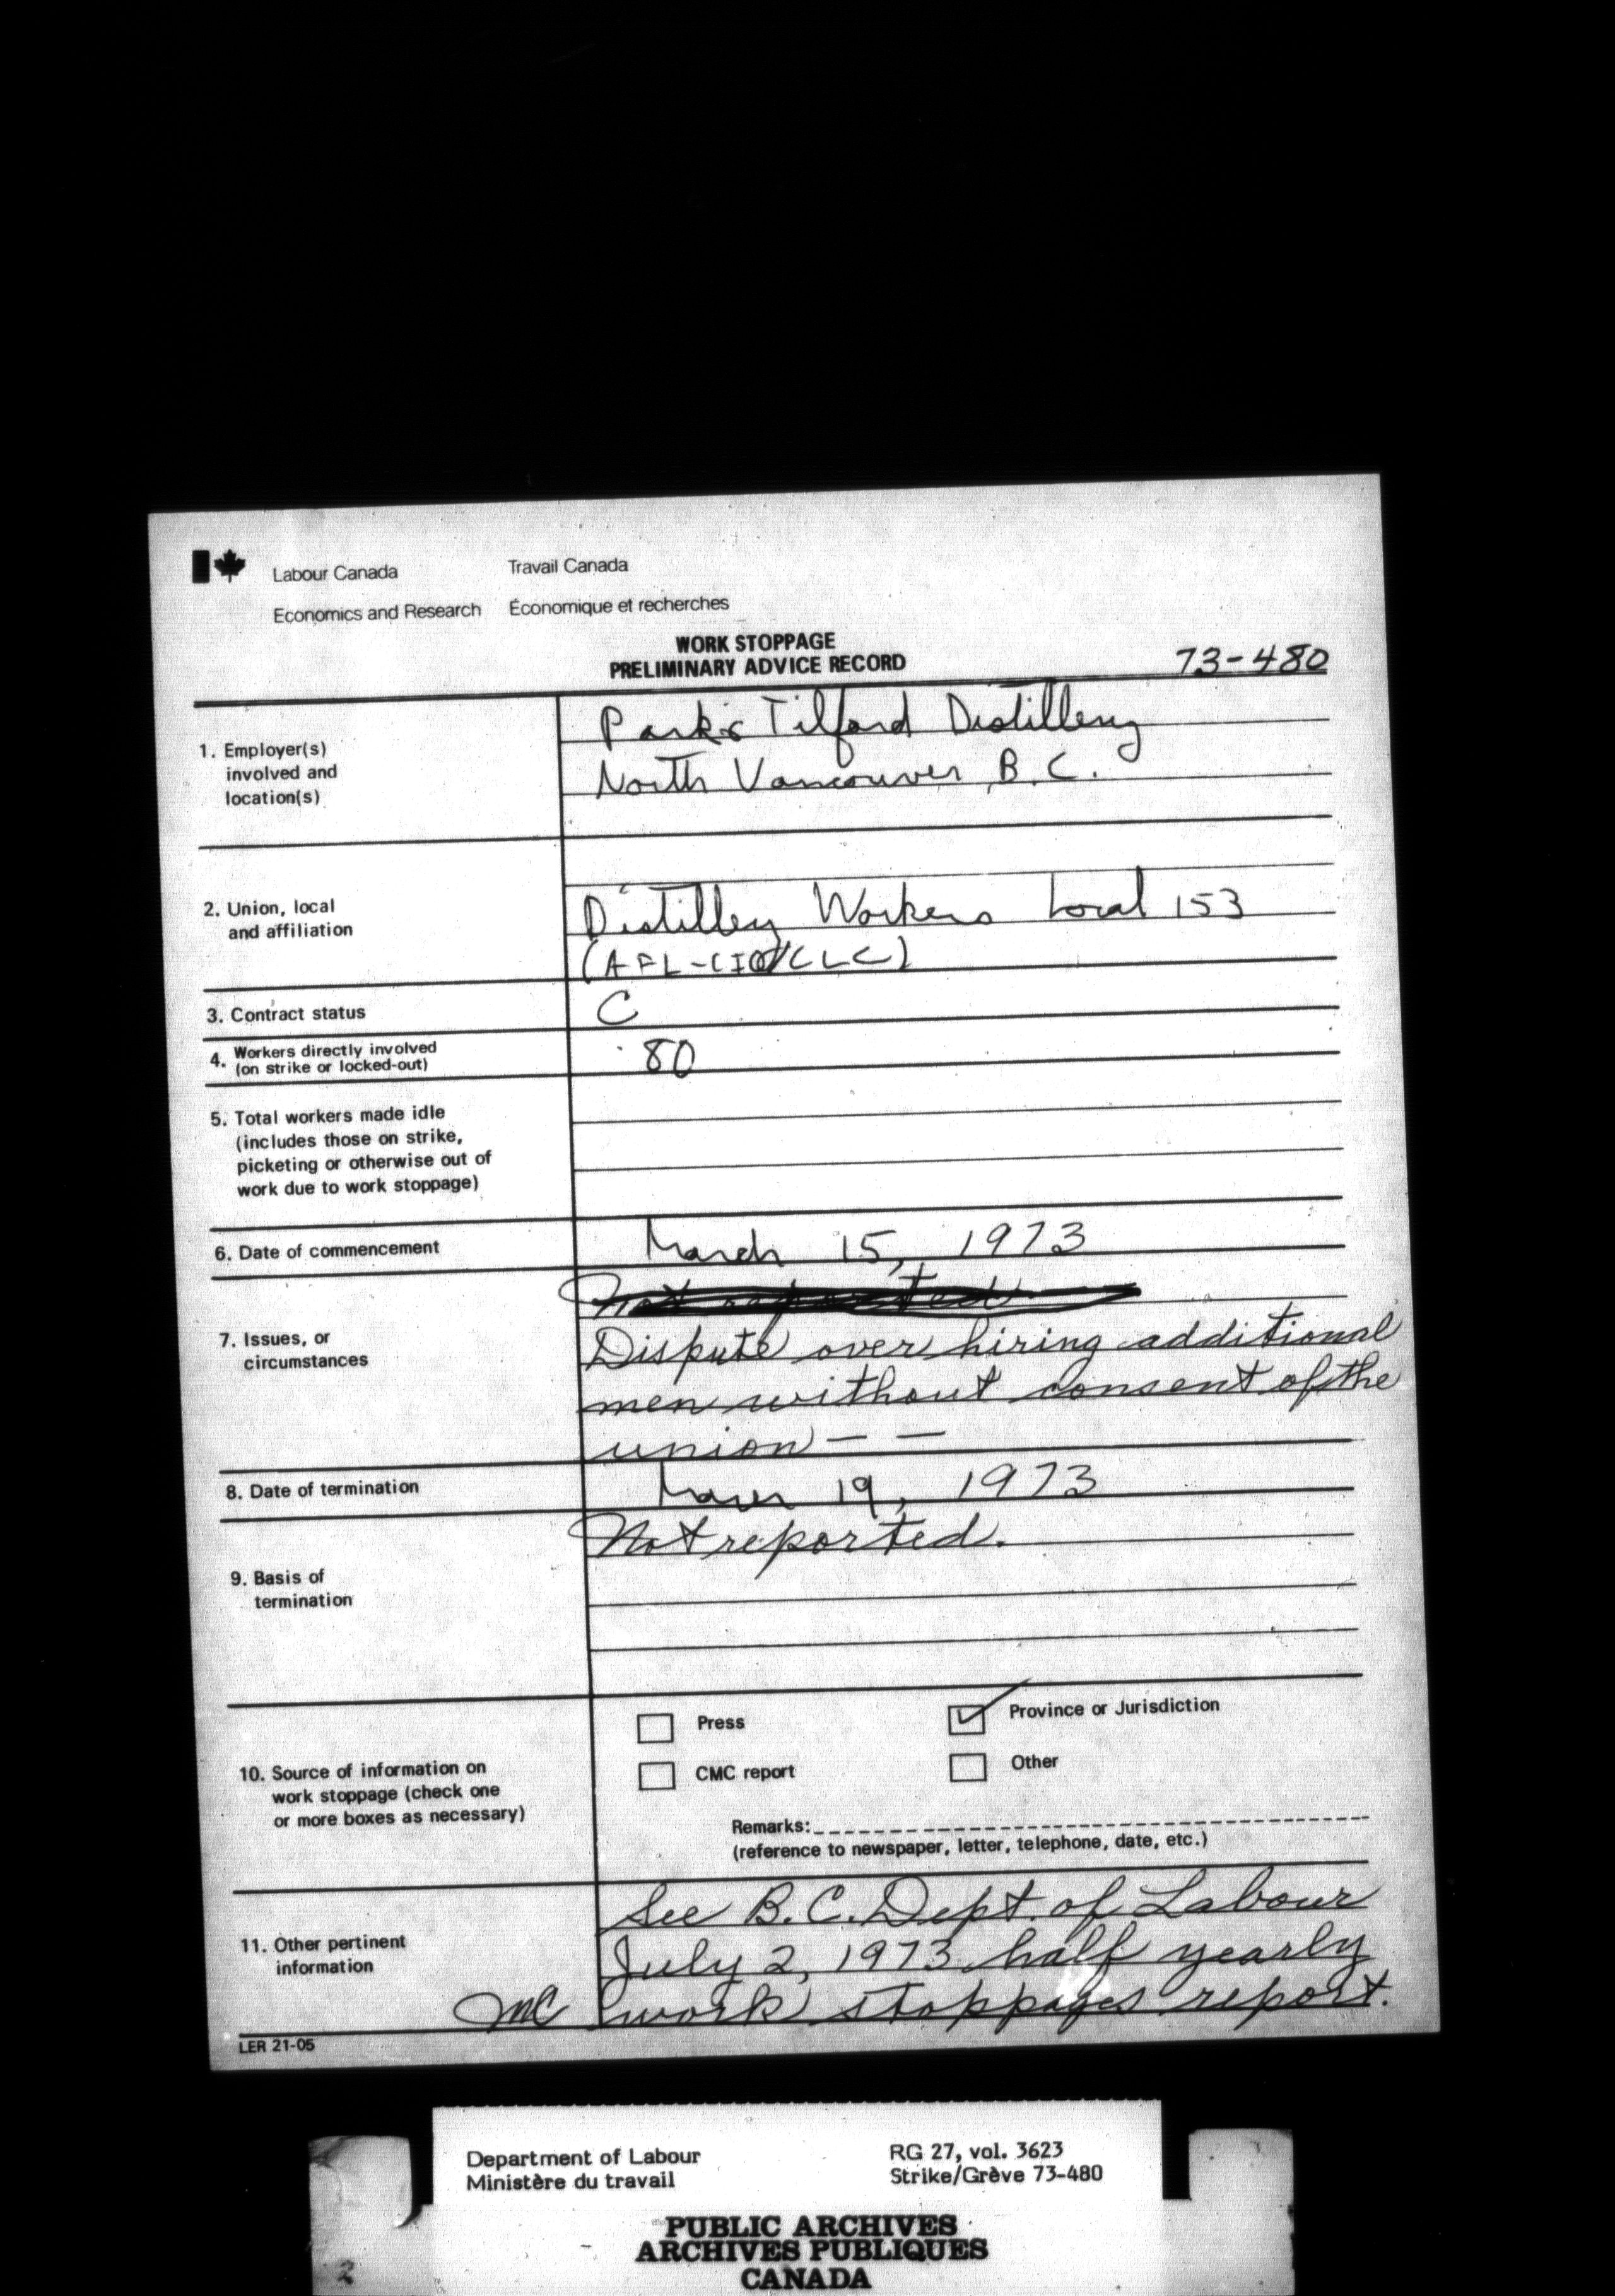 Labour Canada Travail Canada
Economics and Research Économique et recherches
WORK STOPPAGE
PRELIMINARY ADVICE RECORD
73-480
1. Employer(s)
involved and
location(s)
Park & Tilford Distillery
North Vancouver, B.C.
2. Union, local
and affiliation
Distillery Workers Local 153
(AFL-CIO/CLC)
3. Contract status
C
4. Workers directly involved
(on strike or locked-out)
80
5. Total workers made idle
(includes those on strike,
picketing or otherwise out of
work due to work stoppage)
6. Date of commencement
March 15, 1973
7. Issues, or
circumstances
Not reported
Dispute over hiring additional
men without consent of the
union — —
8. Date of termination
March 19, 1973
9. Basis of
termination
Not reported.
10. Source of information on
work stoppage (check one
or more boxes as necessary)
Press
Province or Jurisdiction
CMC report
Other
Remarks:
(reference to newspaper, letter, telephone, date, etc.)
11. Other pertinent
information
See B.C. Dept. of Labour
July 2, 1973 half yearly
work stoppages report.
MC
LER 21-05
Department of Labour
Ministère du travail
RG 27, vol. 3623
Strike/Grève 73-480
PUBLIC ARCHIVES
ARCHIVES PUBLIQUES
CANADA
2